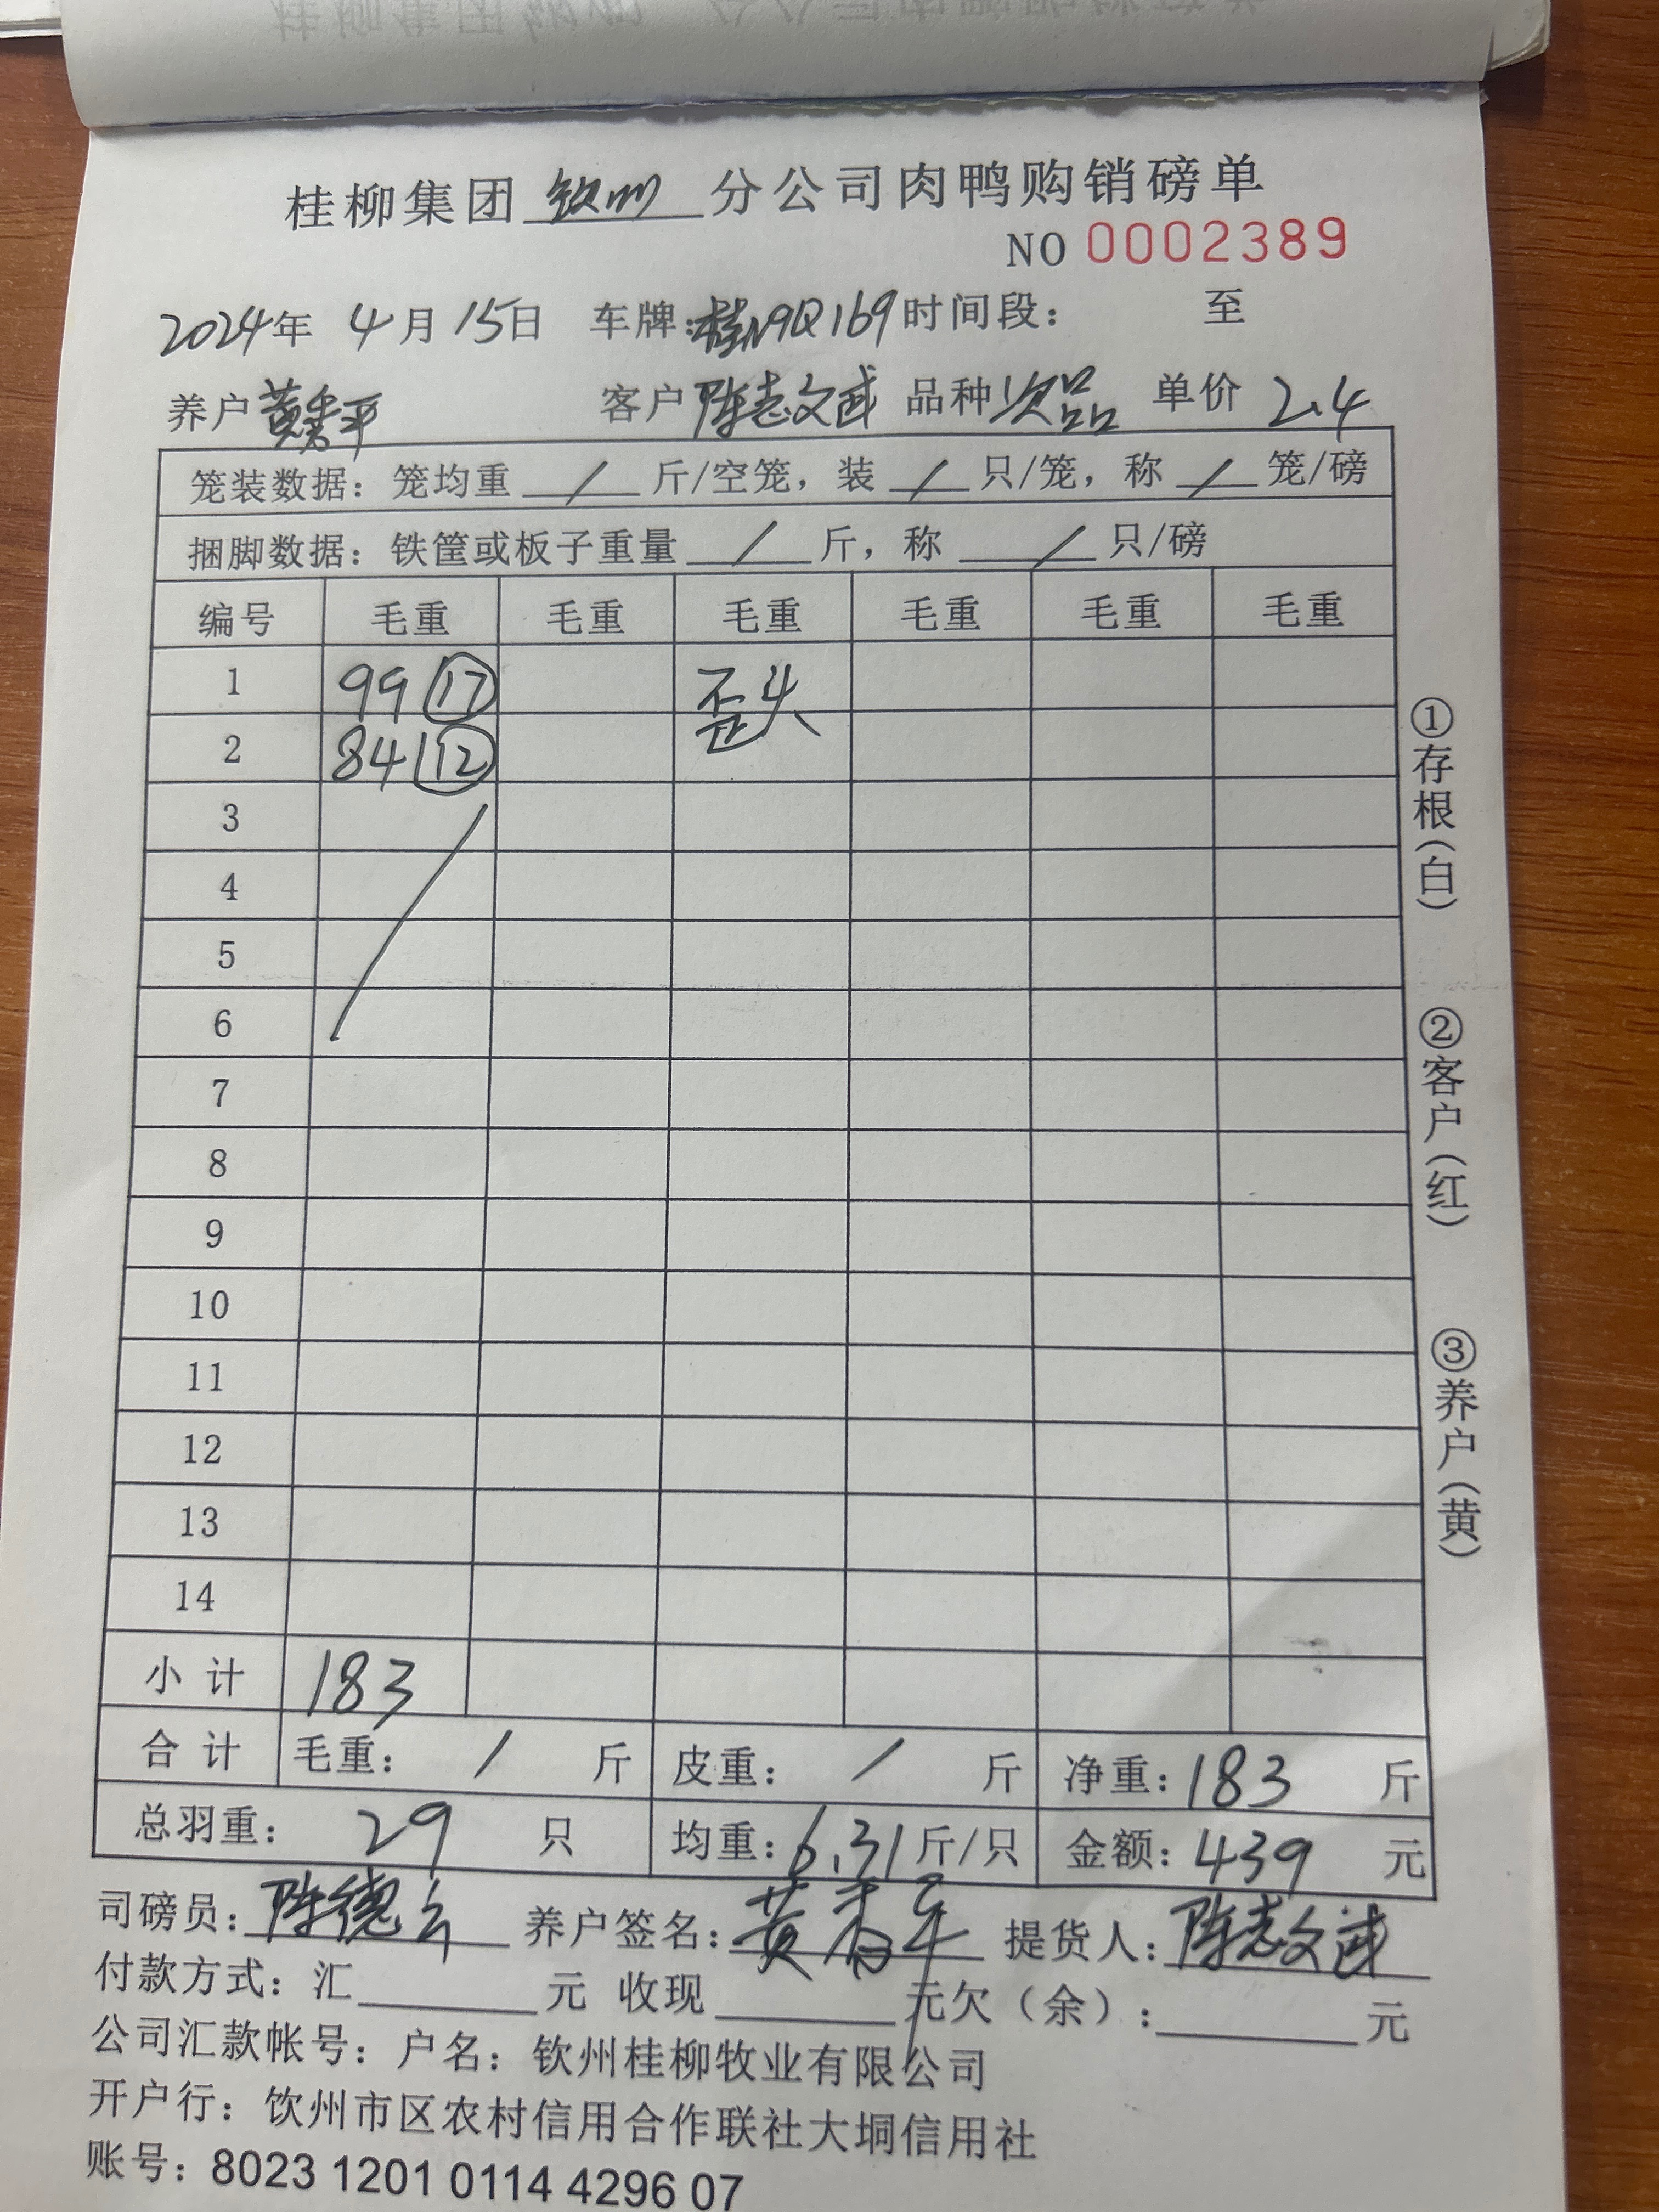 桂柳集团 钦州 分公司肉鸭购销磅单
NO 0002389
2024年 4月15日 车牌:桂N9Q169 时间段: 至
养户 黄秀平 客户 陈志文武 品种 次品 单价 2.4
笼装数据:笼均重 / 斤/空笼,装 / 只/笼,称 / 笼/磅
捆脚数据:铁筐或板子重量 / 斤,称 / 只/磅
编号 毛重 毛重 毛重 毛重 毛重 毛重
1 99 ⑰ 歪头
2 84 ⑫
3
4
5
6
7
8
9
10
11
12
13
14
小计 183
合计 毛重: / 斤 皮重: / 斤 净重:183 斤
总羽重: 29 只 均重:6.31斤/只 金额:439 元
司磅员:陈德云 养户签名:黄秀平 提货人:陈志文武
付款方式:汇 元 收现 元欠(余): 元
公司汇款帐号:户名:钦州桂柳牧业有限公司
开户行:钦州市区农村信用合作联社大垌信用社
账号:8023 1201 0114 4296 07
①存根(白)
②客户(红)
③养户(黄)